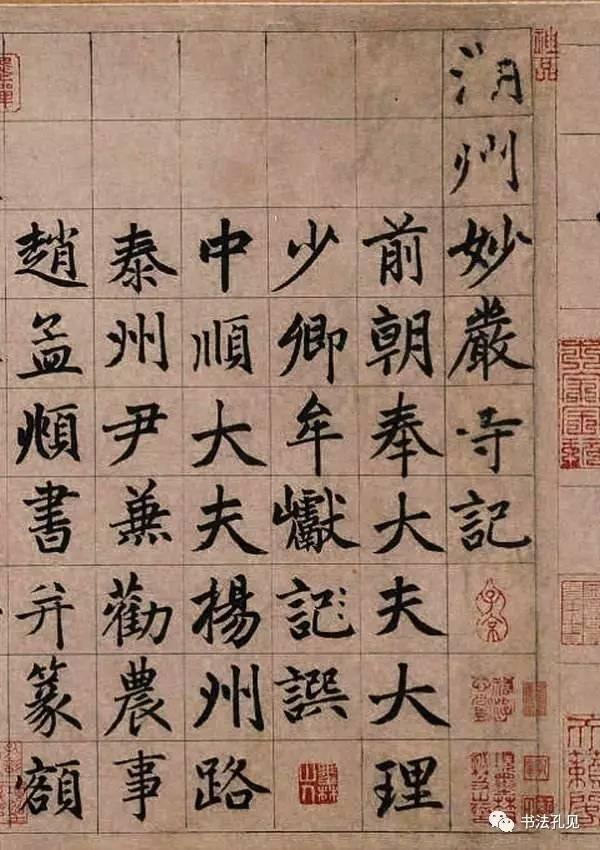 湖州妙嚴寺記
前朝奉大夫大理
少卿牟巘記撰
中順大夫楊州路
泰州尹兼勸農事
趙孟頫書并篆額
神品
子京
天籟閣
书法孔见